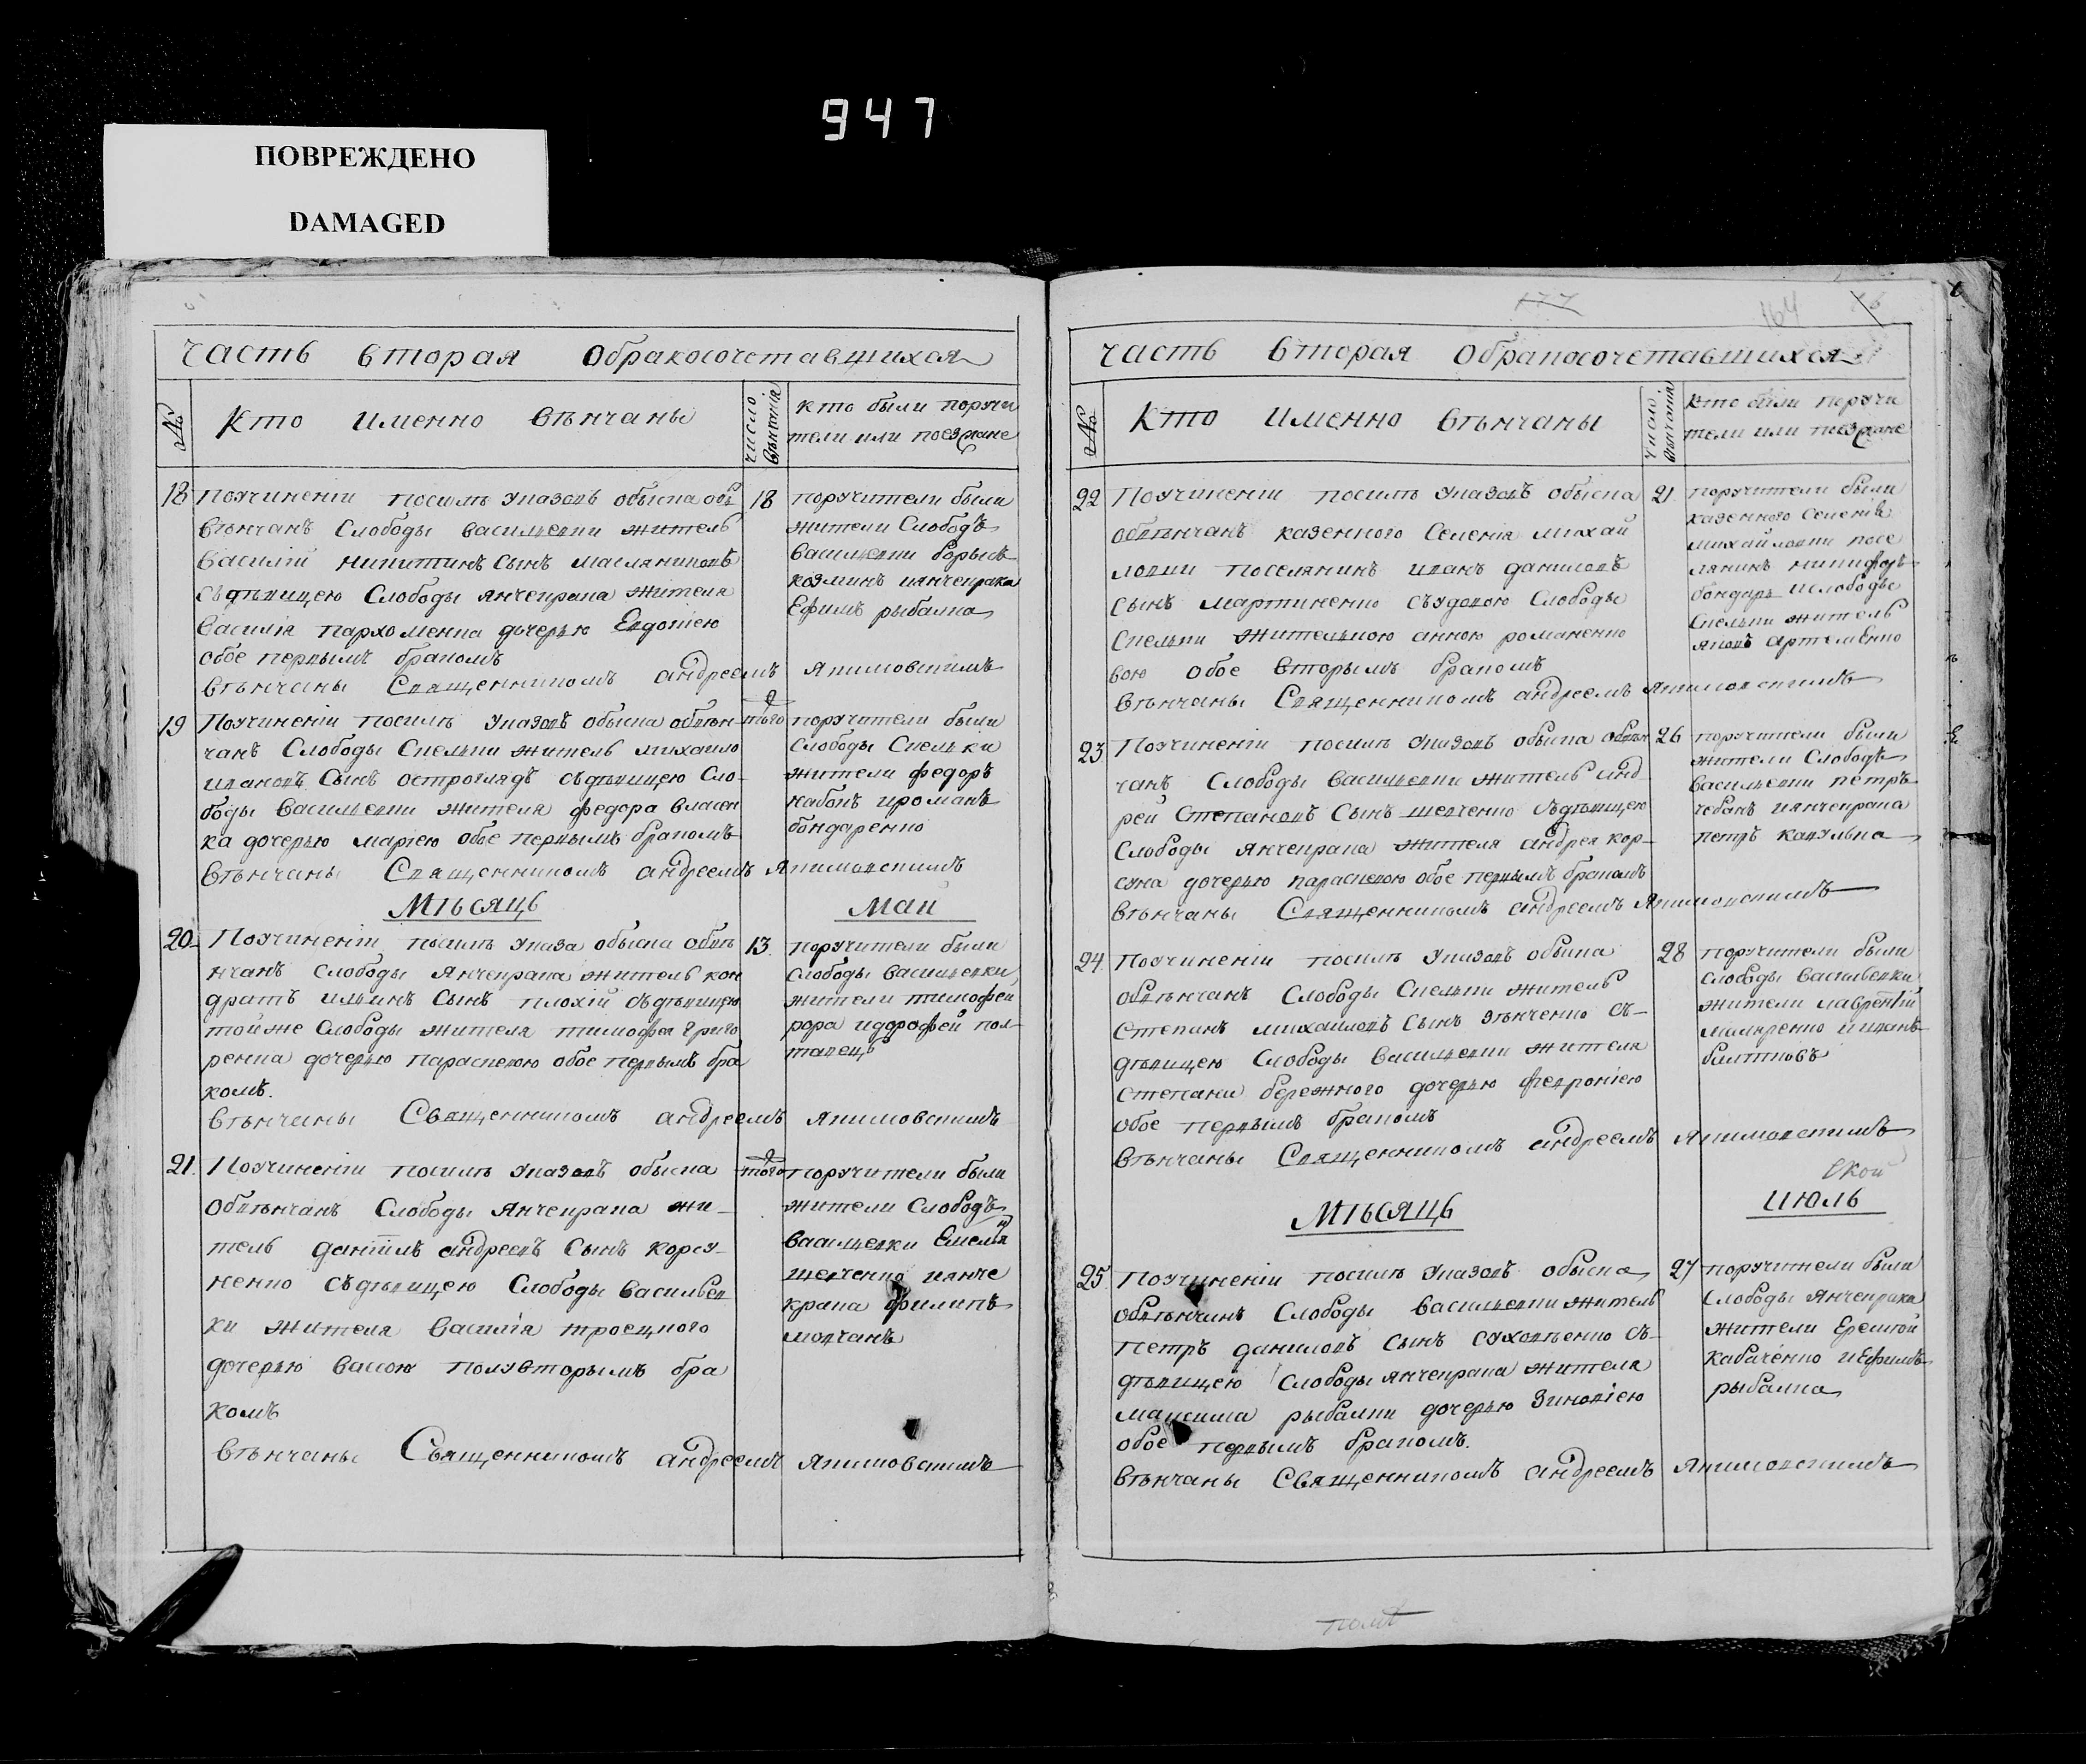 947
ПОВРЕЖДЕНО
DAMAGED
Часть вторая Обракосочетавшихся
№
Кто именно вѣнчаны
число вѣнчанія
кто были поручи
тели или поезжане
18
Поучиненіи посилѣ указовъ обыска объ
вѣнчанъ Слободы василевки житель
василій никитинъ сынъ масляниковъ
съдѣвицею Слободы янчекрака жителя
василія пархоменка дочерью Евдокіею
обое первымъ бракомъ
вѣнчаны Священникомъ андреемъ Якимовскимъ
18
поручители были
жители Слободъ
василевки борысъ
козминъ иянчекрака
Ефимъ рыбалка
19
Поучиненіи посилѣ указовъ обыска обвѣн
чанъ Слободы Спельки житель михаило
ивановъ Сынъ остроглядъ съдѣвицею Сло-
боды василевки жителя федора власен
ка дочерью маріею обое первымъ бракомъ
вѣнчаны Священникомъ андреемъ Якимовскимъ
того
поручители были
Слободы Спельки
жители федоръ
набокъ ироманъ
бондаренко
Мѣсяцъ Май
20
Поучиненіи посилѣ указа обыска обвѣ
нчанъ Слободы Янчекрака житель кон
дратъ ильинъ сынъ плохій съдѣвицею
тойже Слободы жителя тимофея григо
ренка дочерью параскевою обое первымъ бра
комъ.
вѣнчаны Священникомъ андреемъ Якимовскимъ
13.
поручители были
слободы василевки
жители тимофей
рора идорофей пол-
тавецъ
21.
Поучиненіи посилѣ указовъ обыска
обвѣнчанъ Слободы Янчекрака жи-
тель даніилъ андреевъ Сынъ корсу-
ненко съдѣвицею Слободы васильев
ки жителя василія троецкого
дочерью васою полувторымъ бра
комъ
вѣнчаны Священникомъ андреемъ Якимовскимъ
того
поручители были
жители Слободъ
василевки Емельян
шевченко иянче
крака филипъ
мовчанъ
164
Часть вторая Обракосочетавшихся
№
Кто именно вѣнчаны
число вѣнчанія
кто были поручи
тели или поезжане
22
Поучиненіи посилѣ указовъ обыска
обвѣнчанъ казенного Селенія михай
ловки поселянинъ иванъ даниловъ
сынъ мартиненко съудовою Слободы
Спельки жителькою анною романенко
вою обое вторымъ бракомъ
вѣнчаны Священникомъ андреемъ Якимовскимъ
21.
поручители были
казенного Селенія
михайловки посе
лянинъ никифоръ
бондарь ислободы
Спельки житель
яковъ артеменко
23
Поучиненіи посилѣ указовъ обыска обвѣн
чанъ Слободы василевки житель анд
рей Степановъ Сынъ шевченко съдѣвицею
Слободы янчекрака жителя андрея кор-
суна дочерью параскевою обое первымъ бракомъ
вѣнчаны Священникомъ андреемъ Якимовскимъ
26
поручители были
жители Слободъ
василевки петръ
чебанъ иянчекрака
петръ
24.
Поучиненіи посилѣ указовъ обыска
обвѣнчанъ Слободы Спельки житель
Степанъ михаиловъ Сынъ зѣнченко съ-
дѣвицею Слободы василевки жителя
степана бережного дочерью февроніею
обое первымъ бракомъ
вѣнчаны Священникомъ андреемъ Якимовскимъ
28
поручители были
слободы василевки
жители лаврентій
иианъ
Мѣсяцъ июль
25
Поучиненіи посилѣ указовъ обыска
обвѣнчанъ Слободы василевки житель
петръ даниловъ сынъ суховѣенко съ-
дѣвицею Слободы янчекрака жителя
максима рыбалки дочерью Зиновіею
обое первымъ бракомъ.
вѣнчаны Священникомъ андреемъ Якимовскимъ
27
поручители были
Слободы янчекрака
жители Еремѣй
кабаченко иЕфимъ
рыбалка